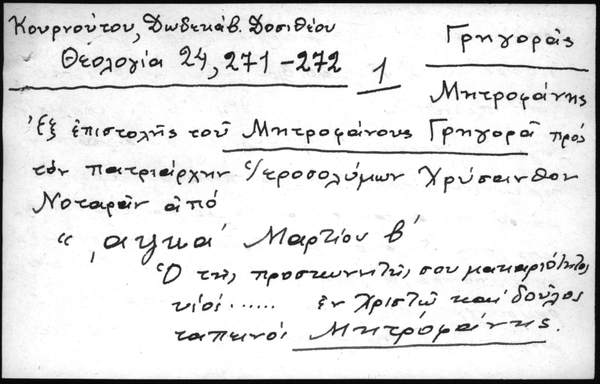 Κουρνούτου, Δωδεκάβ. Δοσιθέου
Θεολογία 24, 271-272
1
Γρηγορᾶς
Μητροφάνης
Ἐξ ἐπιστολῆς τοῦ Μητροφάνους Γρηγορᾶ πρὸς
τὸν πατριάρχην Ἱεροσολύμων Χρύσανθον
Νοταρᾶν ἀπό
" ͵αψκα' Μαρτίου β'
Ὁ τῆς προσκυνητῆς σου μακαριότητος
υἱός ...... ἐν Χριστῷ καὶ δοῦλος
ταπεινός Μητροφάνης.